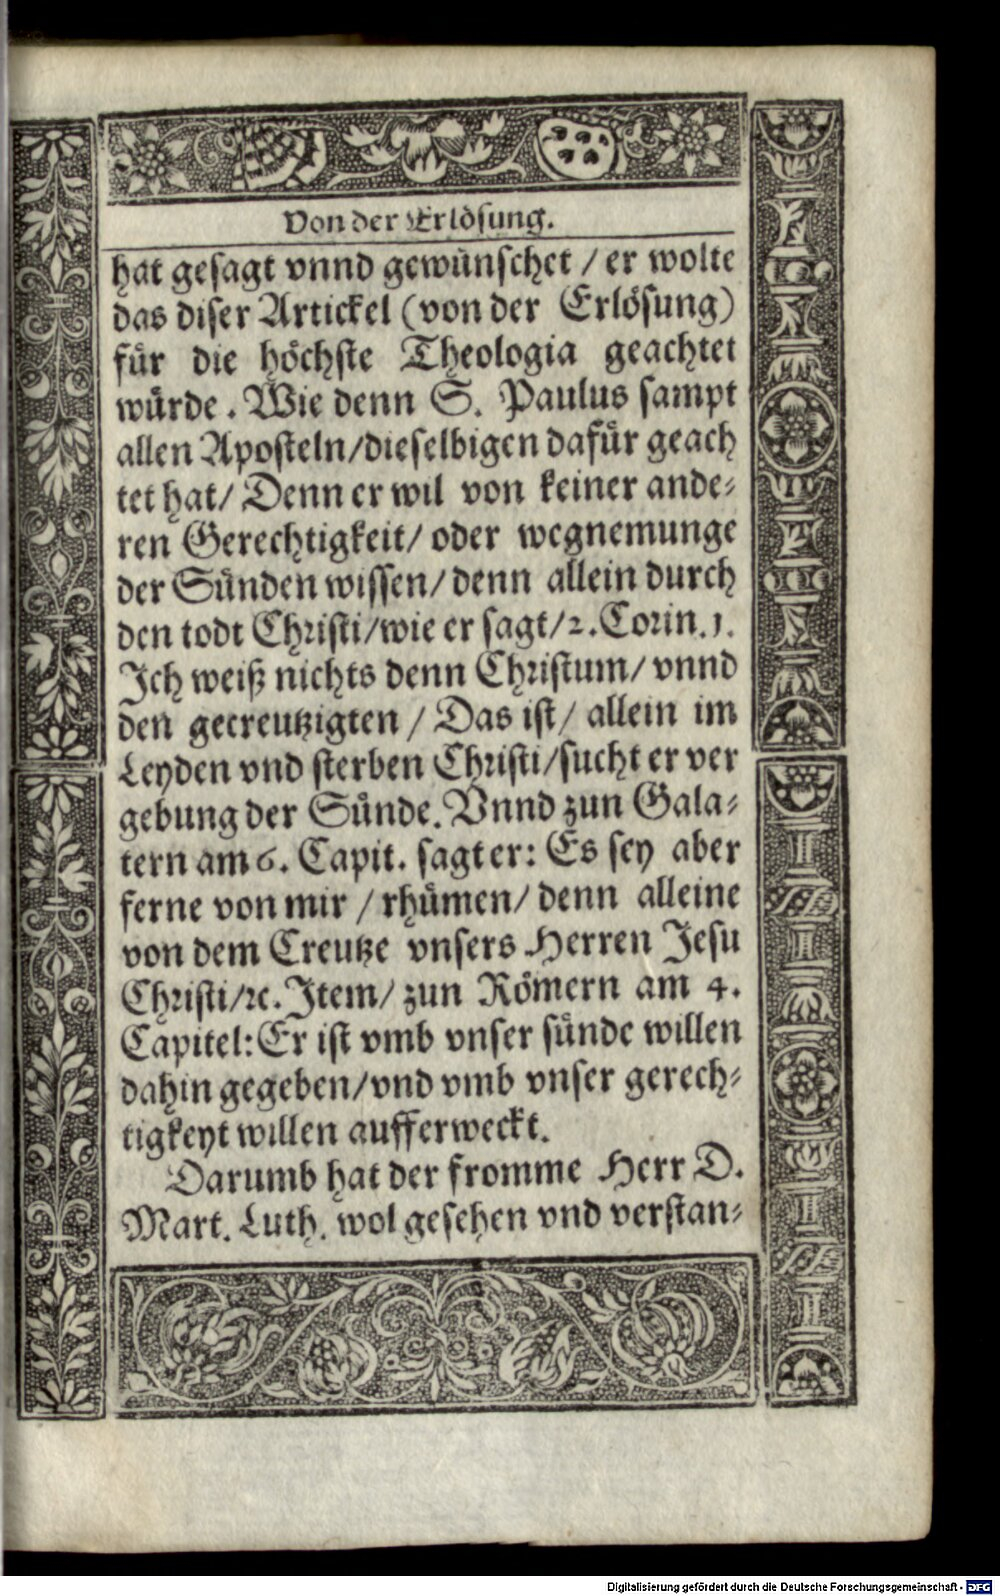 Von der Erlösung.
hat gesagt vnnd gewünschet / er wolte
das diser Artickel (von der Erlösung)
für die höchste Theologia geachtet
würde. Wie denn S. Paulus sampt
allen Aposteln/dieselbigen dafür geach
tet hat/ Denn er wil von keiner ande-
ren Gerechtigkeit/ oder wegnemunge
der Sünden wissen/ denn allein durch
den todt Christi/wie er sagt/2.Corin.1.
Ich weiß nichts denn Christum/ vnnd
den gecreutzigten / Das ist/ allein im
Leyden vnd sterben Christi/sucht er ver
gebung der Sünde. Vnnd zun Gala-
tern am 6. Capit. sagt er: Es sey aber
ferne von mir / rhümen/ denn alleine
von dem Creutze vnsers Herren Jesu
Christi/ꝛc. Item/ zun Römern am 4.
Capitel: Er ist vmb vnser sünde willen
dahin gegeben/vnd vmb vnser gerech-
tigkeyt willen aufferweckt.
Darumb hat der fromme Herr D.
Mart. Luth. wol gesehen vnd verstan-
Digitalisierung gefördert durch die Deutsche Forschungsgemeinschaft - DFG